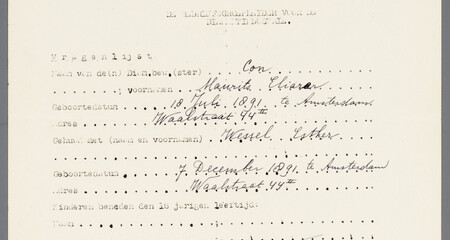 DE
Vragenlijst
Naam van de(n) Dien.bew.(ster) Con
; voornamen Maurits
Geboortedatum 18 Juli 1891 te Amsterdam
Adres Waalstraat 44 III
Gehuwd met (naam en voornamen) Wessel Esther
Geboortedatum 7 December 1891 te Amsterdam
Adres Waalstraat 44 III
Kinderen beneden den 16 jarigen leertijd:
Naam